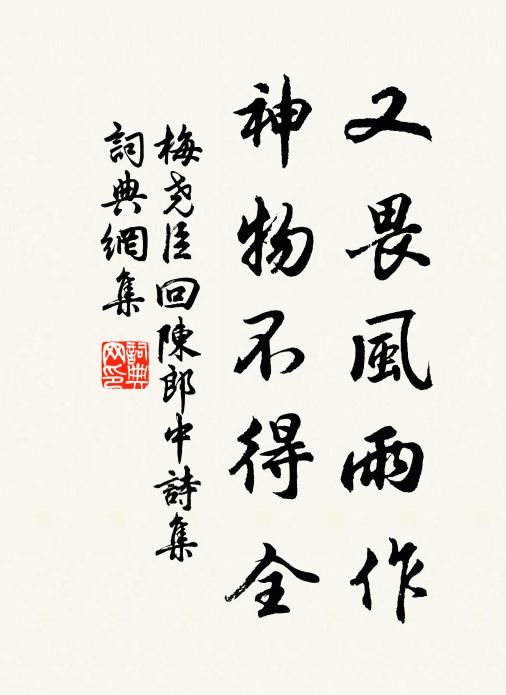 又畏風雨作
神物不得全
梅尧臣回陳郎中詩集
詞典網集
詞典网印